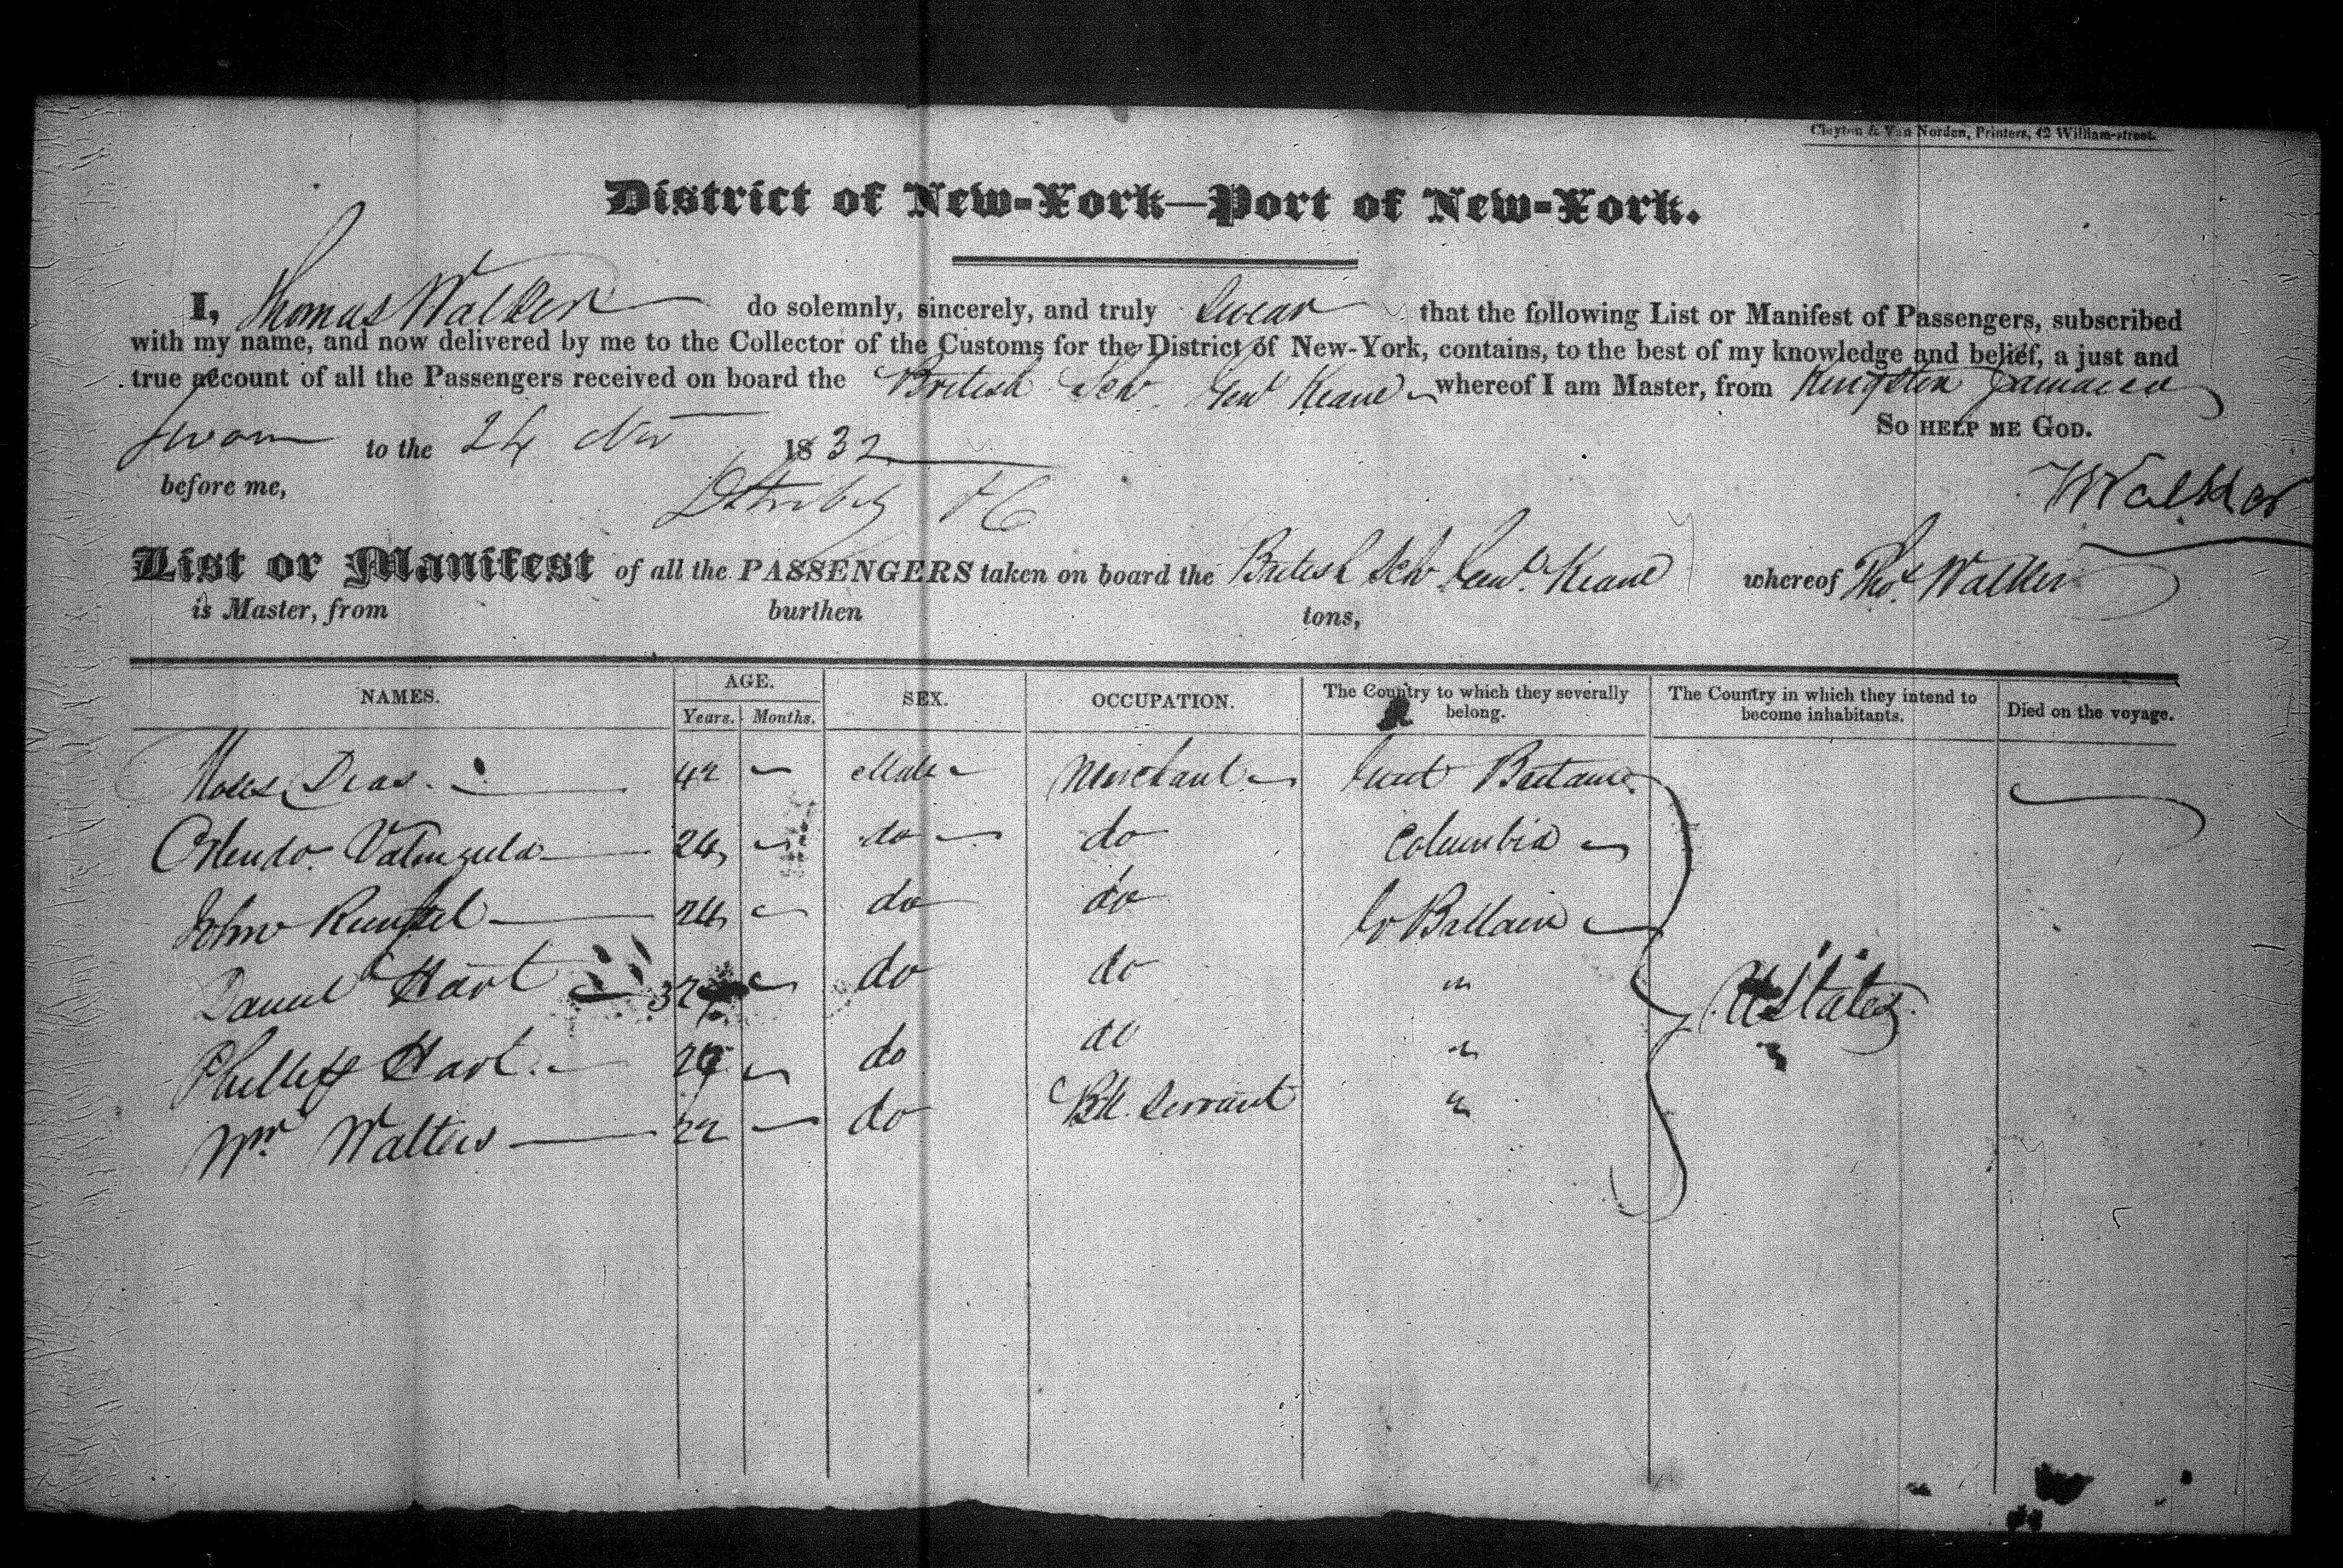 Clayton & Van Norden, Printers, 42 William-street.
District of New-York—Port of New-York.
I, Thomas Walker do solemnly, sincerely, and truly Swear that the following List or Manifest of Passengers, subscribed
with my name, and now delivered by me to the Collector of the Customs for the District of New-York, contains, to the best of my knowledge and belief, a just and
true account of all the Passengers received on board the British Schr Genl Keane whereof I am Master, from Kingston Jamaica
So help me God.
Sworn to the 24 Nov 1832
before me,
T Walker
List or Manifest of all the PASSENGERS taken on board the British Schr Genl. Keane whereof Thos. Walker
is Master, from burthen tons,
NAMES. AGE. Years. Months. SEX. OCCUPATION. The Country to which they severally belong. The Country in which they intend to become inhabitants. Died on the voyage.
Moses Dias. 42 Male Merchant Great Britain
Orlendo Valenzuela 24 do do Columbia
John 24 do do Gr Brittain
Daniel Hart 32 do do "
Phillip Hart. do do "
Wm. Walters 22 do Blk. Servant "
U States